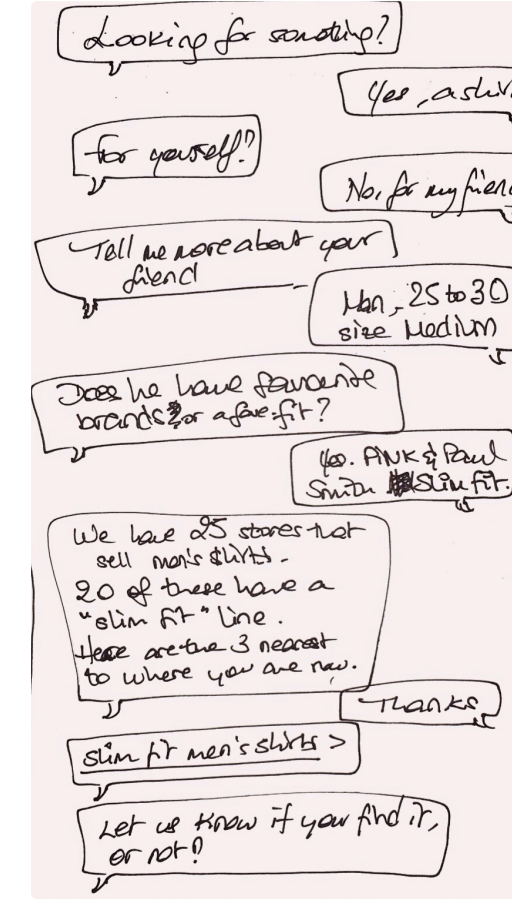 Looking for something?
Yes, a shir
For yourself?
No, for my frien
Tell me more about your
friend
Man, 25 to 30
size Medium
Does he have favourite
brands or a fave fit?
Yes. PINK & Paul
Smith Slim fit.
We have 25 stores that
sell men's shirts.
20 of these have a
"slim fit" line.
Here are the 3 nearest
to where you are now.
Thanks
slim fit men's shirts >
Let us know if you find it,
or not?